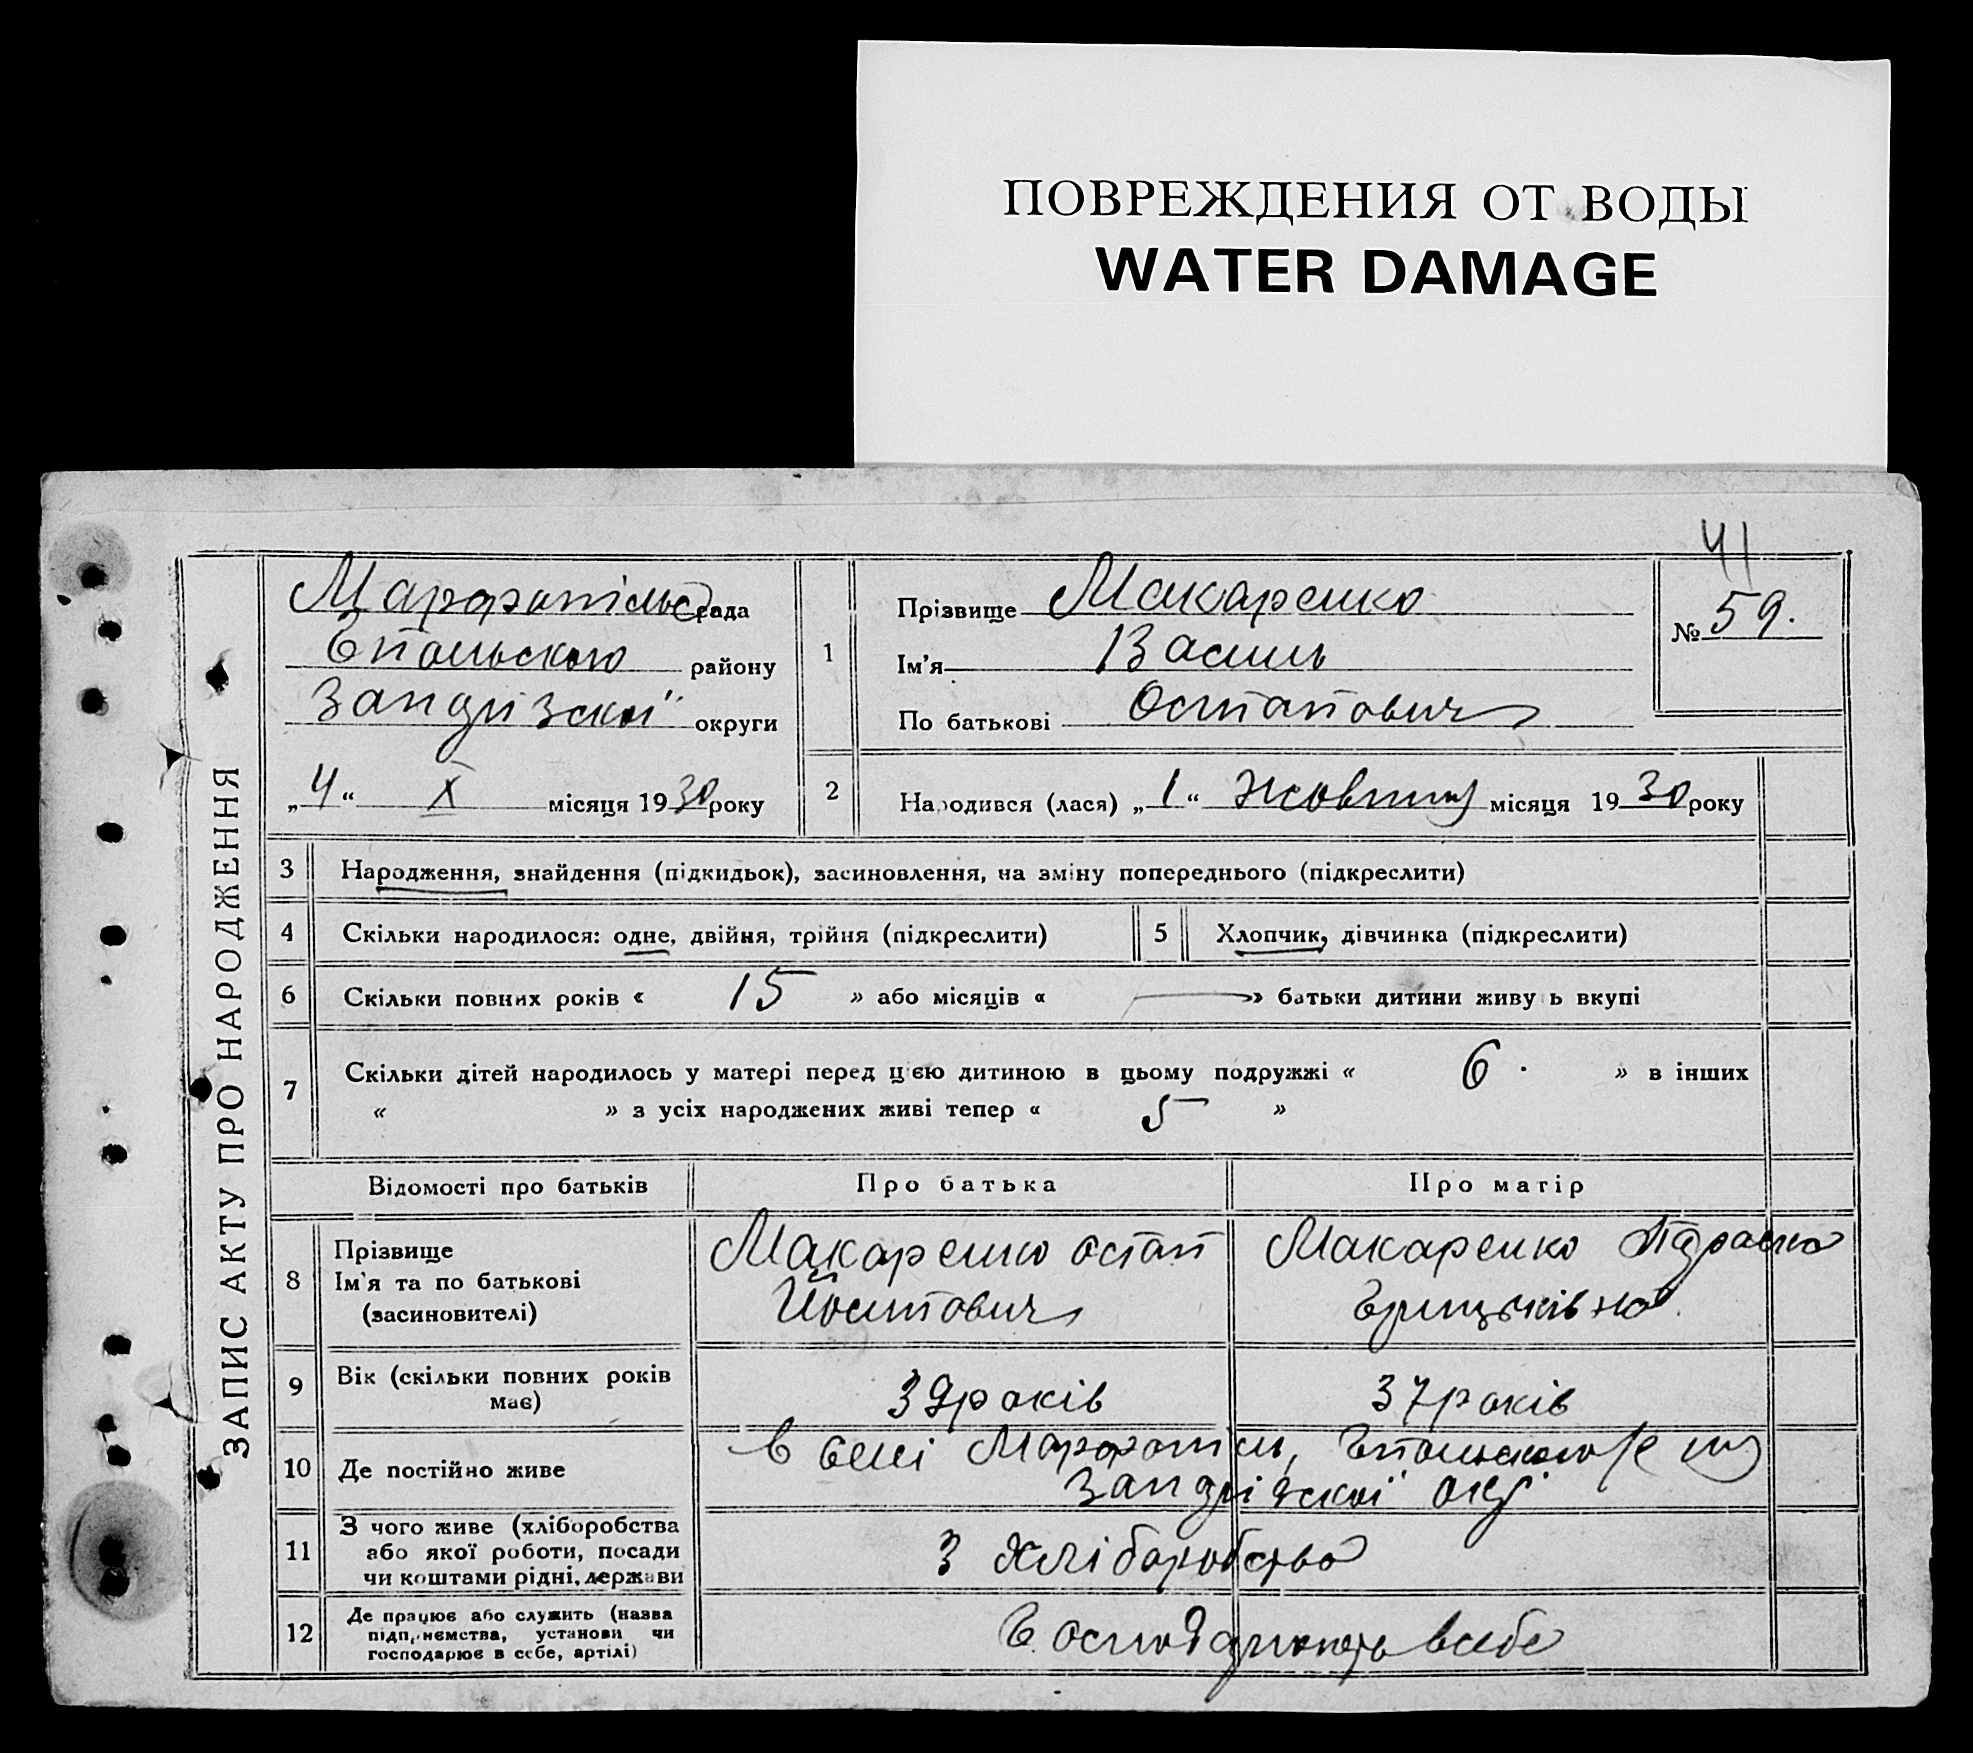 ПОВРЕЖДЕНИЯ ОТ ВОДЫ
WATER DAMAGE
41
ЗАПИС АКТУ ПРО НАРОДЖЕННЯ
рада
району
округи
„4“ X місяця 1930 року
1
Прізвище Макаренко
Ім'я Василь
По батькові Остапович
№ 59.
2 Народився (лася) „1“ Жовтня місяця 1930 року
3 Народження, знайдення (підкидьок), засиновлення, на зміну попереднього (підкреслити)
4 Скільки народилося: одне, двійня, трійня (підкреслити)
5 Хлопчик, дівчинка (підкреслити)
6 Скільки повних років « 15 » або місяців « — » батьки дитини живу ь вкупі
7 Скільки дітей народилось у матері перед цією дитиною в цьому подружжі « 6 . » в інших
« » з усіх народжених живі тепер « 5 »
Відомості про батьків Про батька Про матір
8 Прізвище
Ім'я та по батькові
(засиновителі)
Макаренко Остап
Йосипович
Макаренко Параска
Грицьківна
9 Вік (скільки повних років
має)
39 років 37 років
10 Де постійно живе
в селі
11 З чого живе (хліборобства
або якої роботи, посади
чи коштами рідні, держави
З хліборобства
12 Де працює або служить (назва
підприємства, установи чи
господарює в себе, артілі)
Господарюють в себе